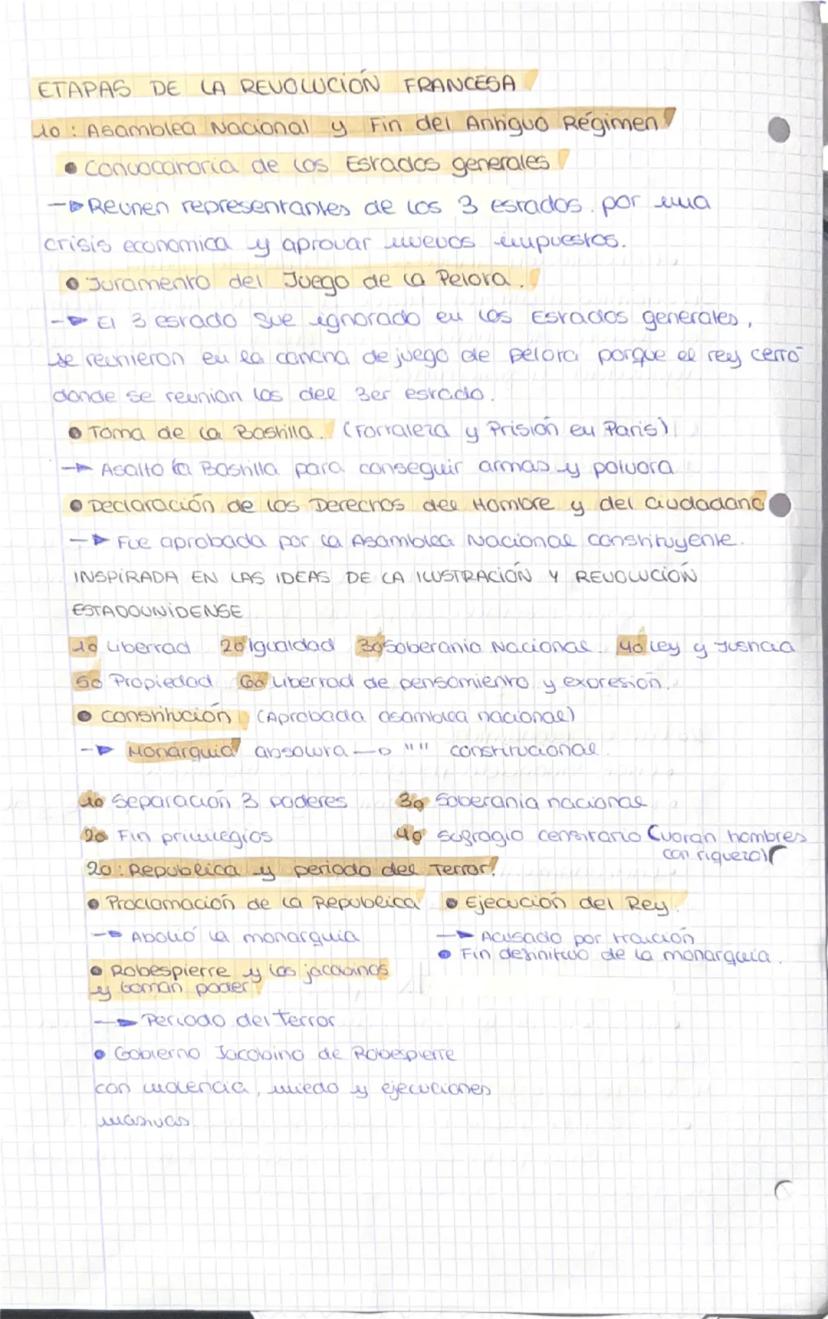 ETAPAS DE LA REVOLUCIÓN FRANCESA
1o: Asamblea Nacional y Fin del Antiguo Régimen
• Convocatoria de los Estados generales
→ Reunen representantes de los 3 estados por una
crisis economica y aprovar nuevos impuestos.
• Juramento del Juego de la Pelota.
→ El 3 estado fue ignorado en los Estados generales,
se reunieron en la cancha de juego de pelota porque el rey cerró
donde se reunian los del 3er estado.
• Toma de la Bastilla. (Fortaleza y Prisión en Paris)
→ Asalto la Bastilla para conseguir armas y polvora
• Declaración de los Derechos del Hombre y del ciudadano
→ Fue aprobada por la Asamblea Nacional constituyente.
INSPIRADA EN LAS IDEAS DE LA ILUSTRACIÓN Y REVOLUCIÓN
ESTADOUNIDENSE
1o Libertad 2o Igualdad 3o Soberania Nacional. 4o Ley y Justicia
5o Propiedad 6o Libertad de pensamiento y expresión.
• Constitución (Aprobada asamblea nacional)
→ Monarquia absoluta → "" constitucional.
1o Separación 3 poderes 3o Soberania nacional
2o Fin privilegios 4o Sufragio censitario (votan hombres
con riqueza)
2o: Republica y periodo del Terror.
• Proclamación de la Republica • Ejecución del Rey.
→ Abolió la monarquia → Acusado por traición
• Fin definitivo de la monarquia.
• Robespierre y los jacobinos
y toman poder
→ Periodo del terror
• Gobierno Jacobino de Robespierre
con violencia, miedo y ejecuciones
masivas